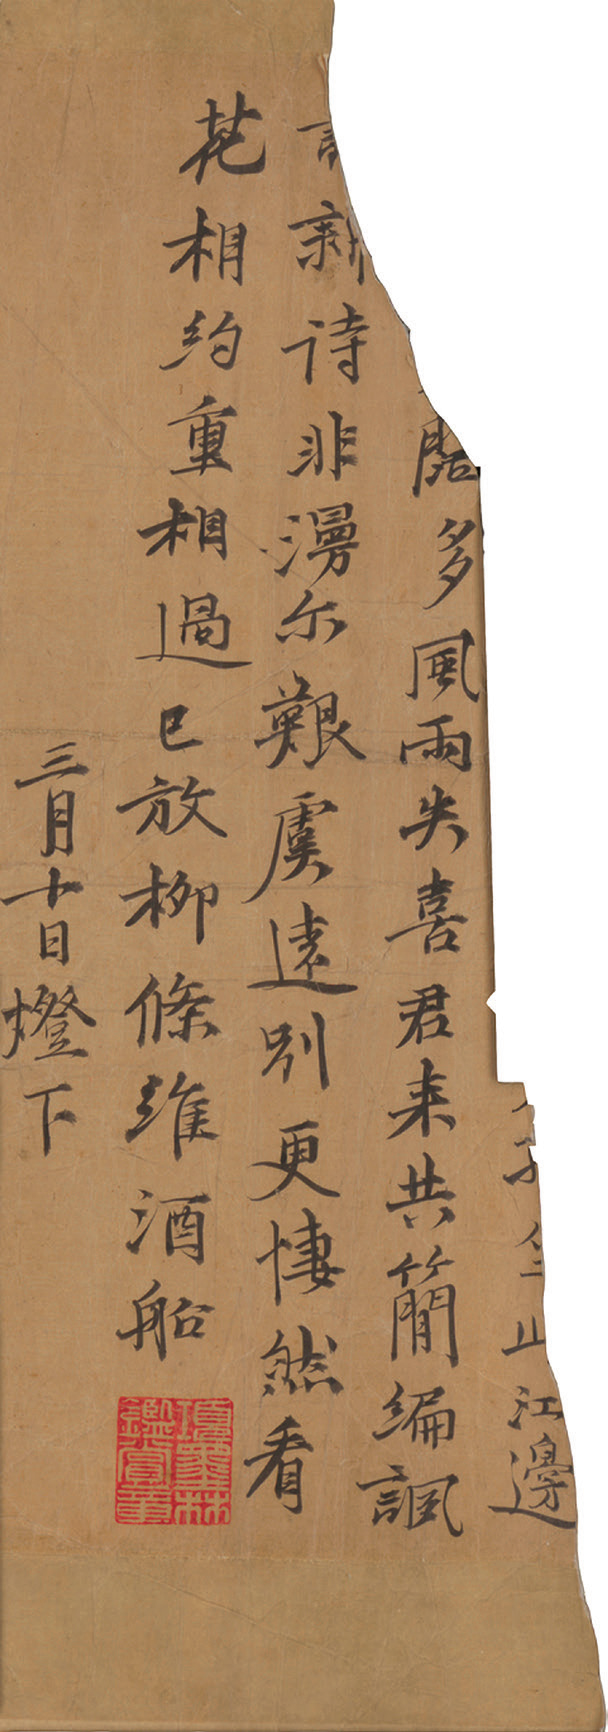 江邊
多風雨失喜君来共簡編諷
新诗非漫尔艱虞遠别更悽然看
花相约重相過已放柳條維酒船
三月十日燈下
項墨林
鑑賞章